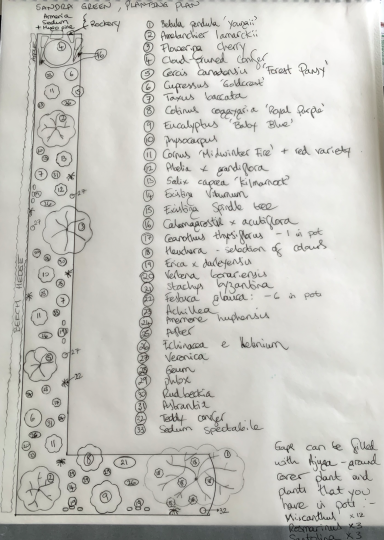 SANDRA GREEN - PLANTING PLAN
Armeria
Sedum
Rockery
1 Betula pendula 'Youngii'
2 Amelanchier lamarckii
3 Flowering cherry
4 Cloud pruned conifer
5 Cercis canadensis 'Forest Pansy'
6 Cupressus 'Goldcrest'
7 Taxus baccata
8 Cotinus coggygria 'Royal Purple'
9 Eucalyptus 'Baby Blue'
10 Physocarpus
11 Cornus 'Midwinter Fire' + red variety
12 Abelia x grandiflora
13 Salix caprea 'Kilmarnock'
14 Existing Viburnum
15 Existing Spindle tree
16 Calamagrostis x acutiflora
17 Ceanothus thyrsiflorus - 1 in pot
18 Heuchera - selection of colours
19 Erica x darleyensis
20 Verbena bonariensis
21 Stachys byzantina
22 Festuca glauca: - 6 in pots
23 Achillea
24 Anemone hupehensis
25 Aster
26 Echinacea e Helenium
27 Veronica
28 Geum
29 phlox
30 Rudbeckia
31 Astrantia
32 Teddy conifer
33 Sedum spectabile
BEECH HEDGE
Gaps can be filled
with Ajuga - ground
cover plant and
plants that you
have in pots :-
Miscanthus x 12
Rosmarinus x 3
Santolina x 3